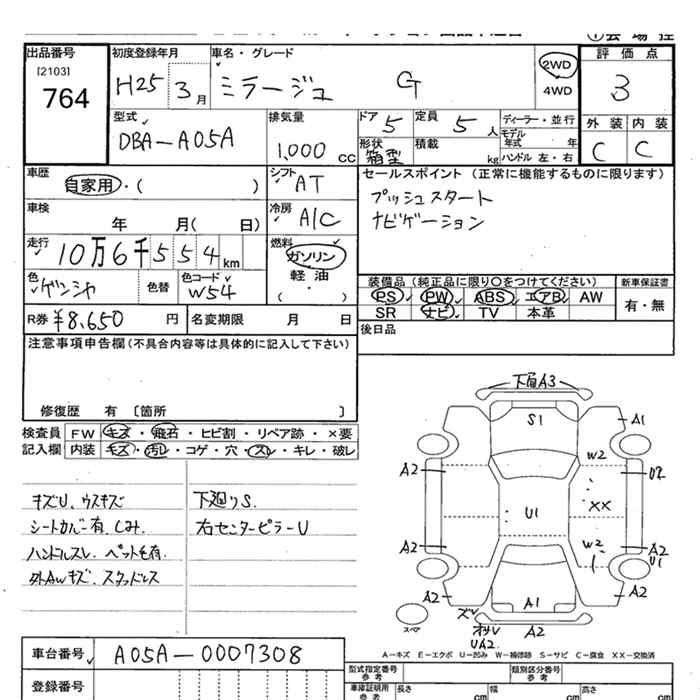 出品番号 初度登録年月 車名・グレード ①会場控
[2103] H25 3月 ミラージュ G 2WD 評価点
764 4WD 3
型式 排気量 ドア 定員 ディーラー・並行 外装 内装
DBA-A05A 1,000 CC 5 5人 モデル年式 年 C C
形状 箱型 積載 kg ハンドル 左・右
車歴 自家用・( ) シフト AT セールスポイント (正常に機能するものに限ります)
車検 年 月( 日) 冷房 A/C プッシュスタート
ナビゲーション
走行 10万6千554km 燃料 ガソリン
軽油
( )
色 ゲンシャ 色替 色コード W54 装備品 (純正品に限り○をつけてください) 新車保証書
PS PW ABS エアB AW 有・無
SR ナビ TV 本革
R券 ¥8,650円 名変期限 月 日 後日品
注意事項申告欄(不具合内容等は具体的に記入して下さい)
修復歴 有 〔箇所 〕
検査員 FW キズ・飛石・ヒビ割・リペア跡・×要
記入欄 内装 キズ・汚レ・コゲ・穴・スレ・キレ・破レ
キズU、ウスキズ 下廻りS.
シートカバー有.しみ. 右センターピラーU
ハンドルスレ.ペット毛有.
外AWキズ、スタッドレス
下回A3
S1 A1
W2
A2 U2
U1 XX
W2
A2 A2
U1
A2 A1 A2
スペア A2
UA2
A-キズ E-エクボ U-凹み W-補修跡 S-サビ C-腐食 XX-交換済
車台番号 A05A-0007308
登録番号 型式指定番号 参考 類別区分番号 参考
車庫証明用 参考 長さ cm 幅 cm 高さ cm